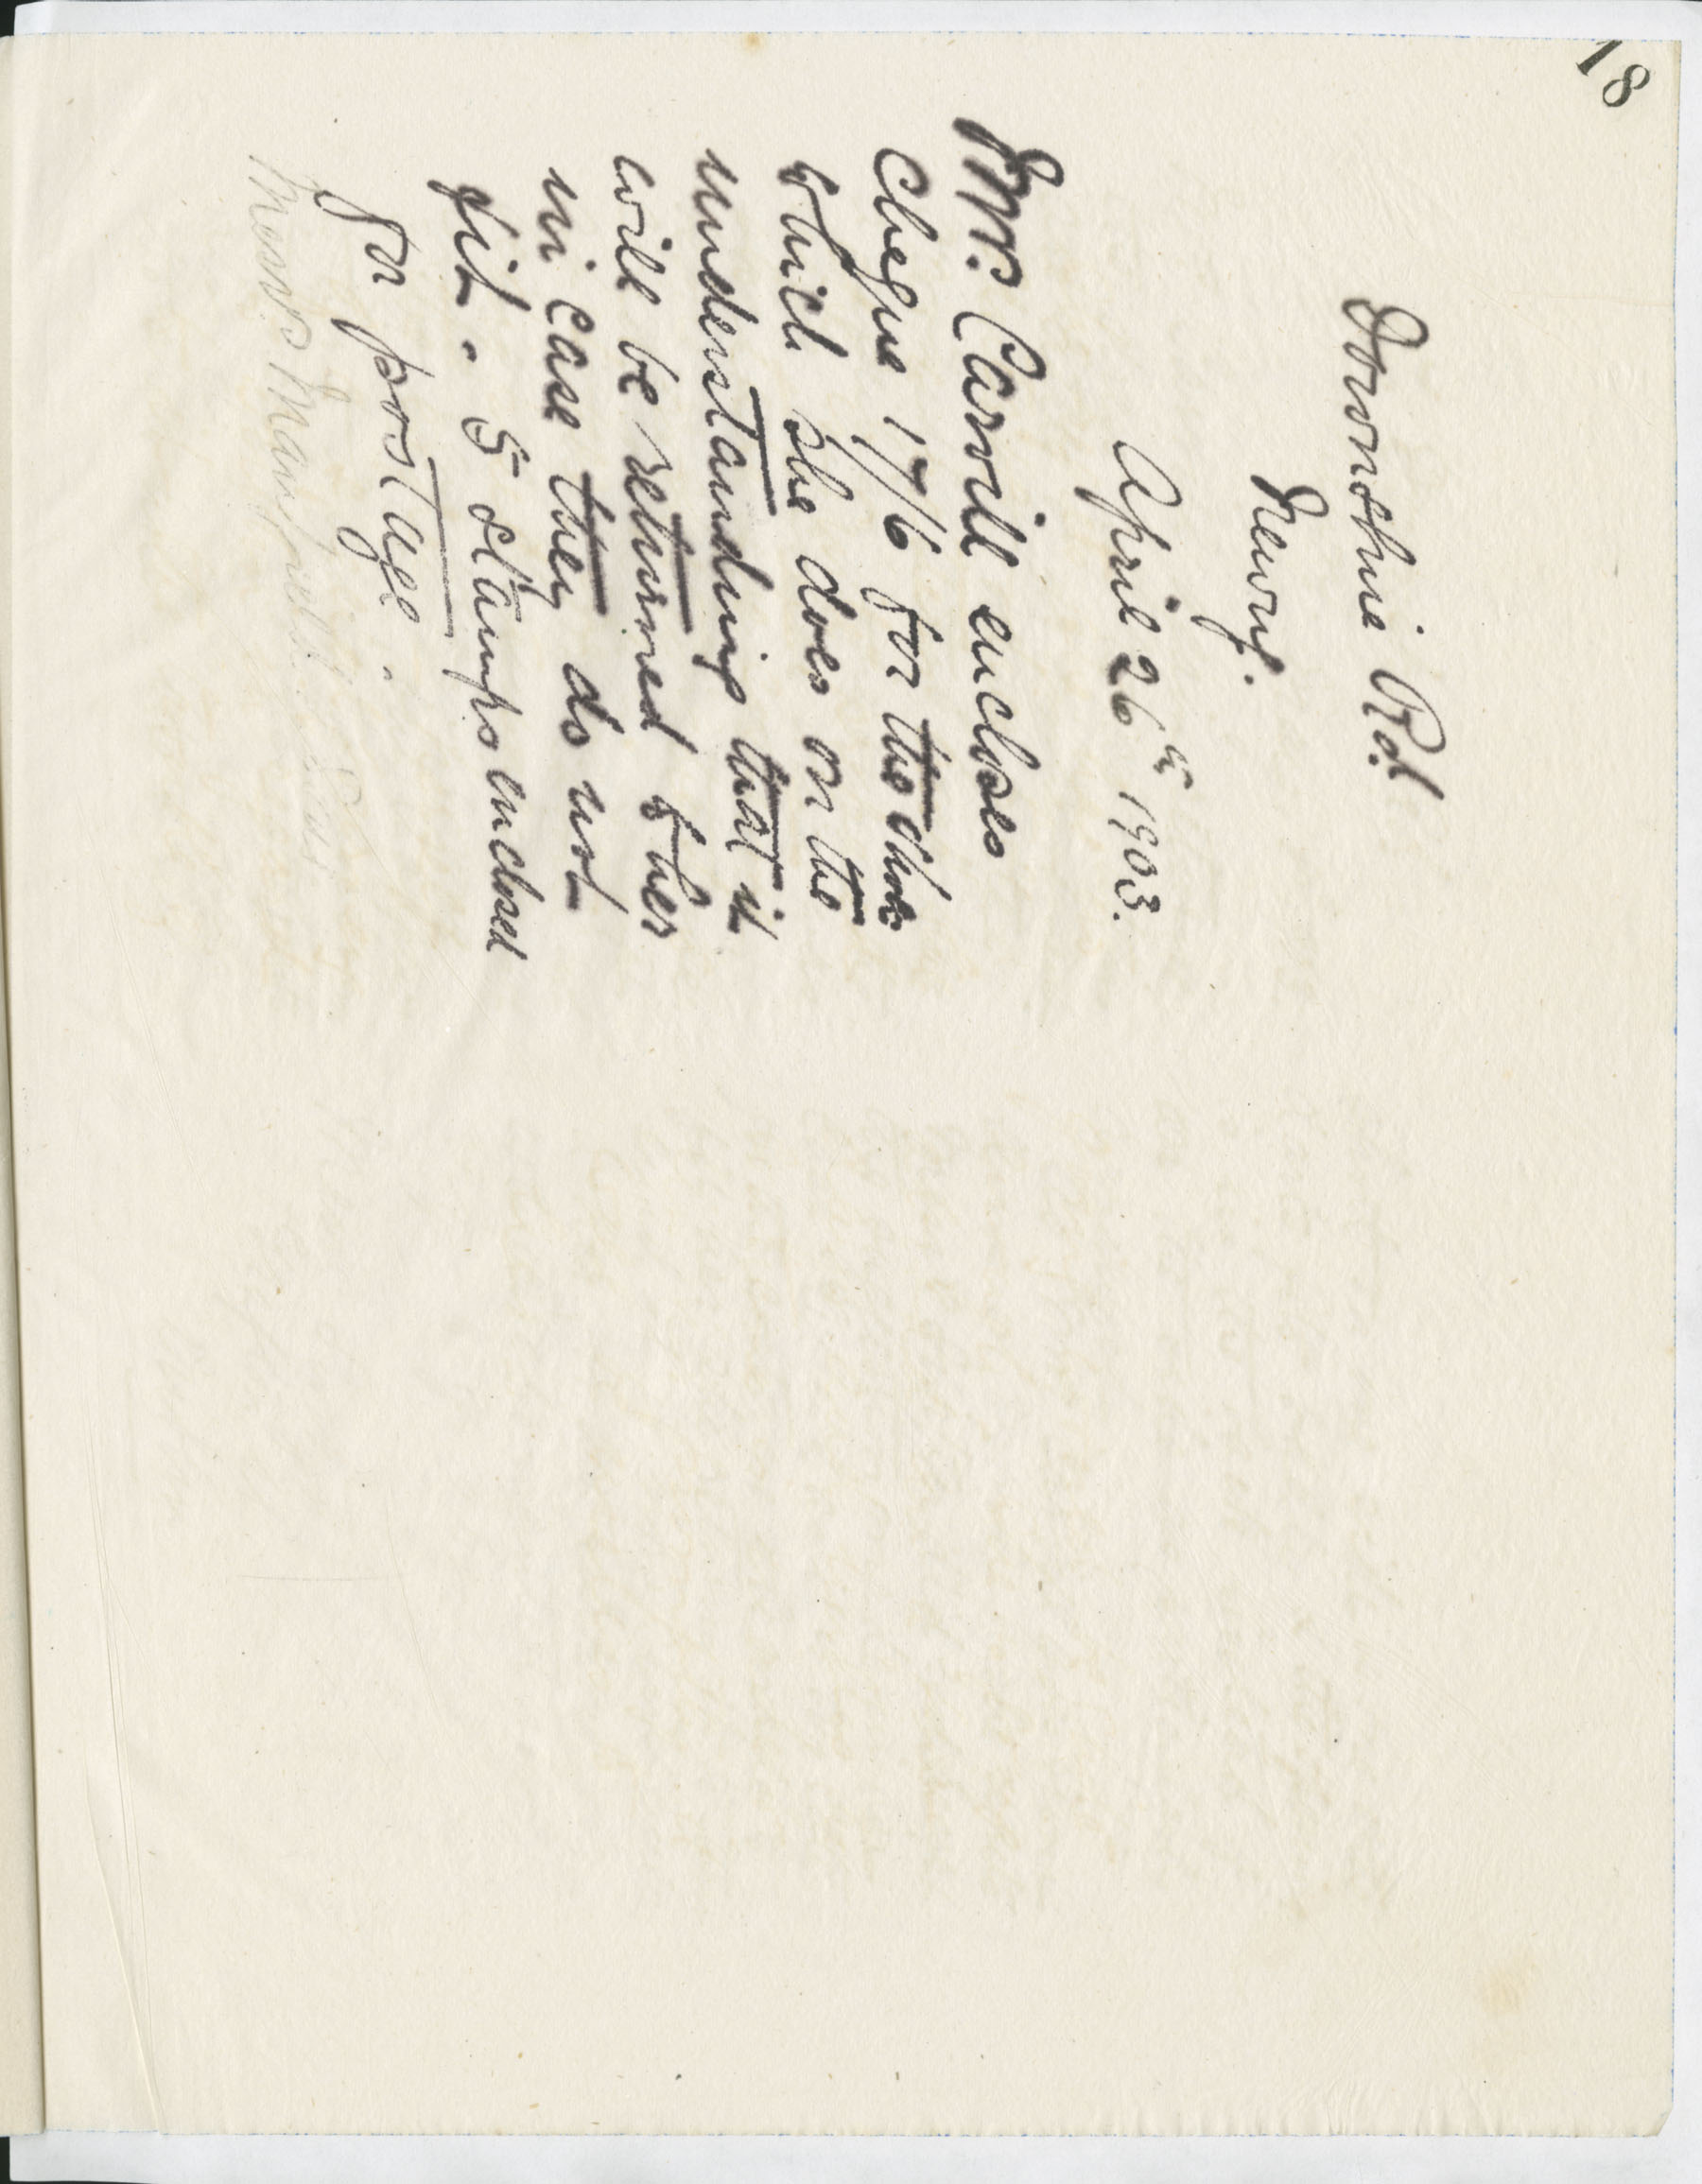 18
Downshire Rd
Newry.
April 26th 1903.
Mrs. Carvill encloses
Cheque 17/6 for the shoes
which she does on the
understanding that it
will be returned to her
in case they do not
fit. 5 stamps enclosed
for postage.
Messrs Mansfield